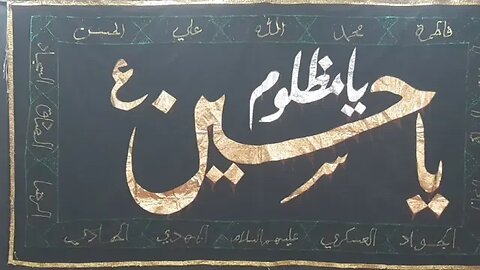 فاطمة محمد الله علي الحسن
يا مظلوم
يا حسين ع
السجاد
الصادق
الرضا
الجواد العسكري عليهم السلام المهدي الهادي